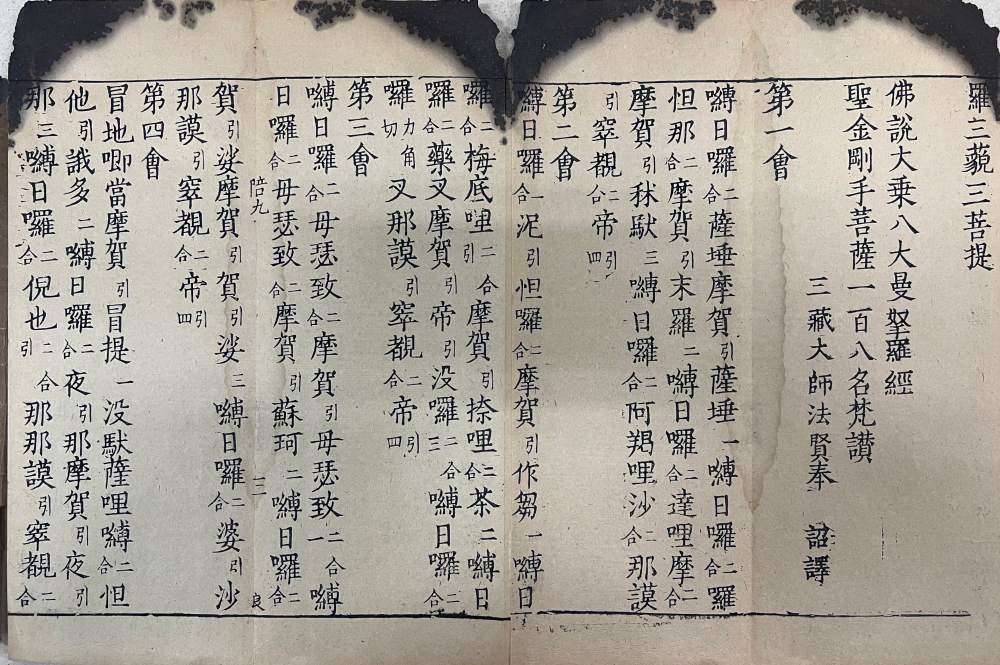 羅三藐三菩提
佛說大乘八大曼拏羅經
聖金剛手菩薩一百八名梵讃
三藏大師法賢奉 詔譯
第一會
嚩日囉二合薩埵摩賀引薩埵一嚩日囉二合羅
怛那二合摩賀引末羅二嚩日囉二合達哩摩二合
摩賀引秫馱三嚩日囉二合阿羯哩沙二合那謨
引窣覩二合帝引四
第二會
嚩日囉二合泥引怛囉二合摩賀引作芻一嚩日
囉二合梅底哩二合引摩賀引捺哩二合茶二嚩日
囉二合藥叉摩賀引帝引没囉二合三嚩日囉二合
囉力角切叉那謨引窣覩二合帝引四
第三會
嚩日囉二合毋瑟致二合摩賀引毋瑟致二合一嚩
日囉二合毋瑟致二合摩賀引蘇珂二嚩日囉二合
陪九 三 良
賀引娑摩賀引賀引娑三嚩日囉二合婆引沙
那謨引窣覩二合帝引四
第四會
冒地唧當摩賀引冒提一没馱薩哩嚩二合怛
他引誐多二嚩日囉二合夜引那摩賀引夜引
那三嚩日囉二合倪也二合引那那謨引窣覩二合